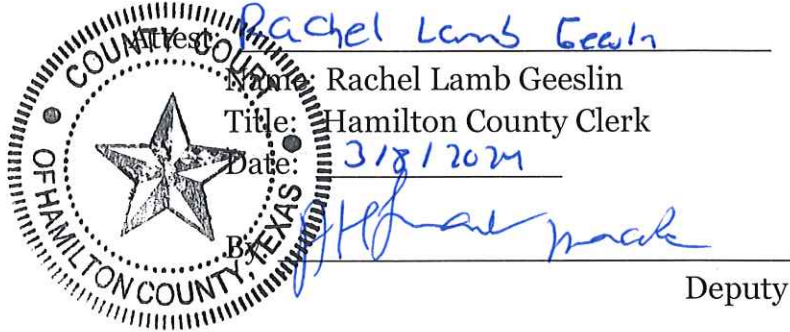 Attest: Rachel Lamb Geesln
Name: Rachel Lamb Geeslin
Title: Hamilton County Clerk
Date: 3/8/2024
By
Deputy
COUNTY COURT
OF HAMILTON COUNTY, TEXAS